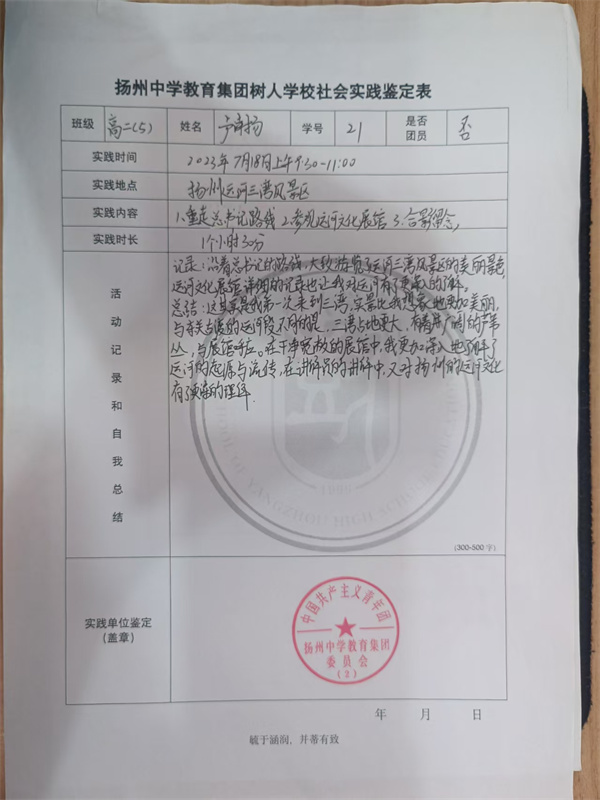 扬州中学教育集团树人学校社会实践鉴定表
班级 高二(5) 姓名 扬 学号 21 是否团员 否
实践时间 2023年7月18日上午9:30-11:00
实践地点 扬州运河三湾风景区
实践内容 1.重走总书记路线 2.参观运河文化展馆 3.合影留念
实践时长 1个小时30分
活动记录和自我总结
记录：沿着总书记的路线，大致游览了运河三湾风景区的美丽景色，
运河文化展馆详细的记录也让我对运河有了更高的了解。
总结：这其实是我第一次来到三湾，实景比我想象地更加美丽，
与有关古运的运河段不同的是，三湾占地更大，有着更广阔的芦苇
丛，与展馆呼应。在干净宽敞的展馆中，我更加深入地了解了
运河的起源与流传，在讲解员的讲解中，又对扬州的运河文化
有了更深的理解.
(300-500字)
实践单位鉴定
(盖章)
中国共产主义青年团
扬州中学教育集团
委员会
(2)
年 月 日
毓于涵润，并蒂有致